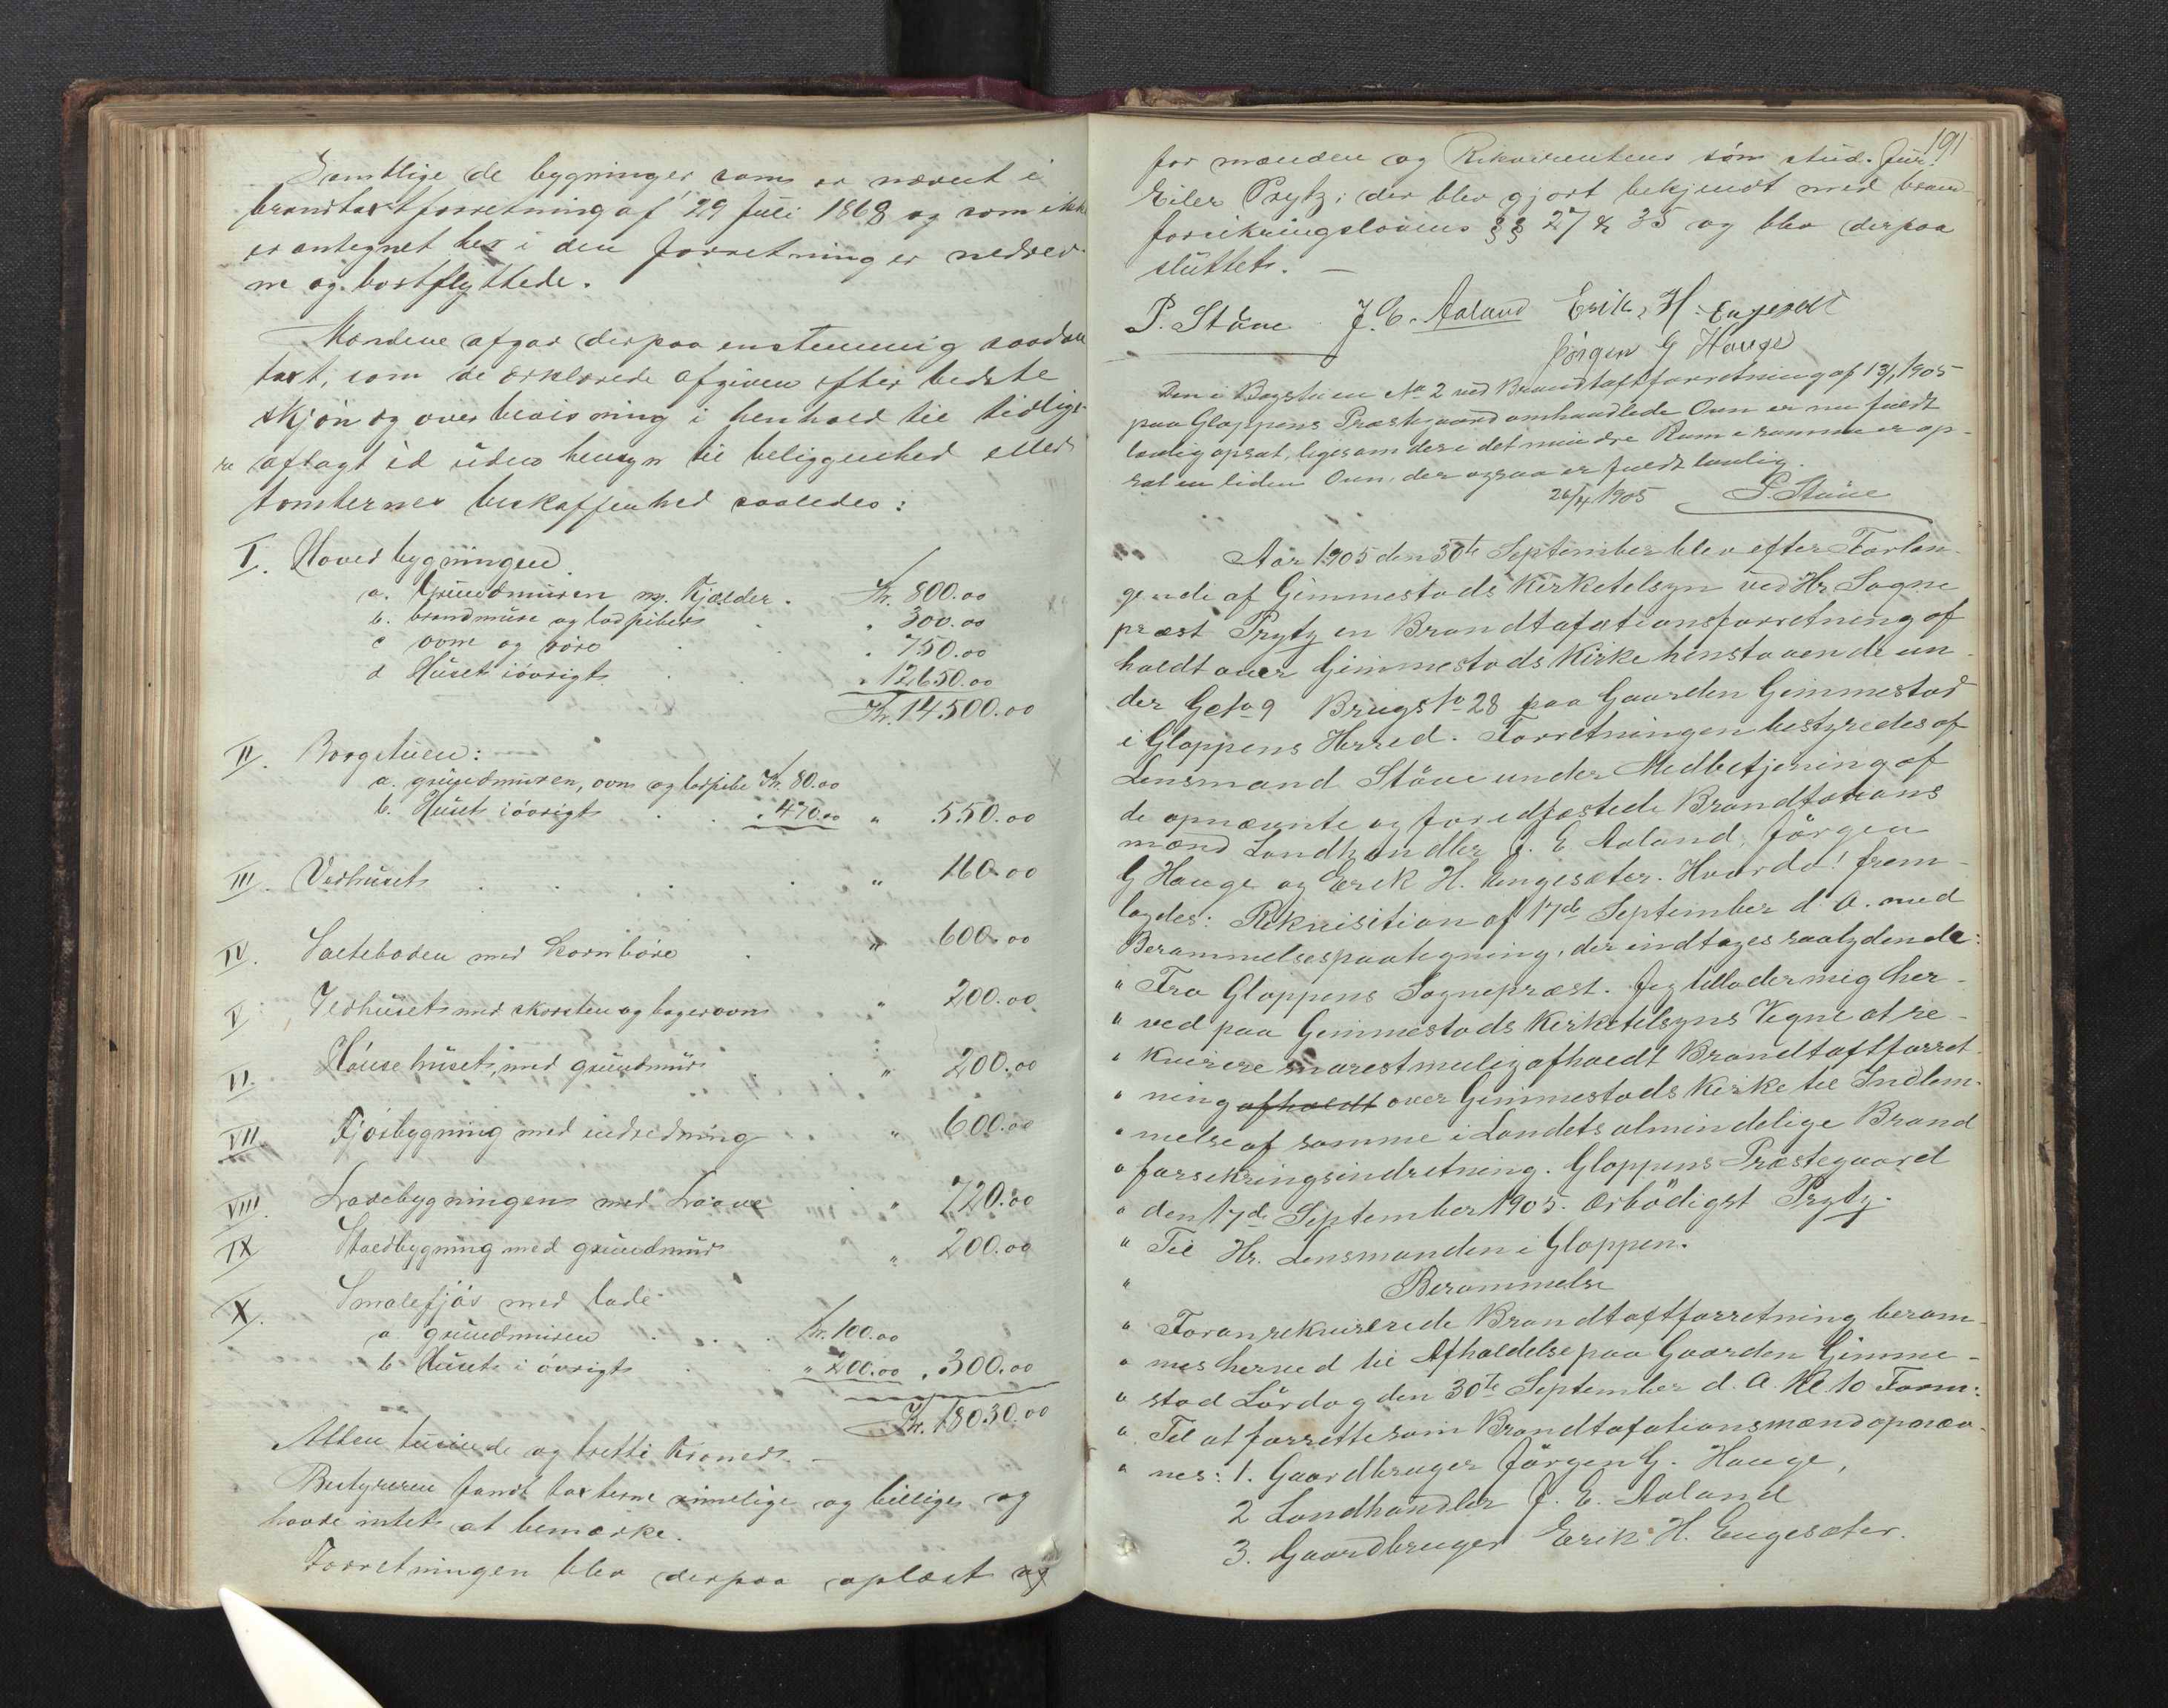 Samtlige de bygninger som er nævnt i
brandtaxtforretning af 29 Juli 1868 og som ikke
er antegnet her i den forretning er nedrev-
ne og bortflyttede.
Mændene afgav derpaa enstemmig saadan
taxt, som de erklærede afgiven efter bedste
skjøn og overbevisning i henhold til tidlige-
re aflagt ed uden hensyn til beliggenhed eller
tomternes beskaffenhed saaledes:
I. Hovedbygningen
a. Grundmuren m. Kjælder. Kr. 800.00
b. brandmure og ladpiber . " 300.00
c ovne og röre . . " 750.00
d Huset iövrigt . . " 12650.00
Kr. 14500.00
II. Borgstuen:
a. grundmuren, ovn og ladpibe Kr. 80.00
b. Huset iövrigt . . " 470.00 " 550.00
III. Vedhuset . . . . " 160.00
IV. Salteboden med Kornböre . " 600.00
V. Ildhuset med skorsten og bagerovn " 200.00
VI. Hönsehuset, med grundmur . . " 200.00
VII. Fjösbygning med indredning " 600.00
VIII. Ladebygningen med Laave " 720.00
IX Staldbygning med grundmur " 200.00
X. Smalefjös med lade
a. grundmuren . . . Kr. 100.00
b Huset i övrigt . " 200.00 " 300.00
Kr. 18030.00
Atten tusinde og tretti Kroner. —
Bestyreren fandt taxterne rimelige og billige og
havde intet at bemærke.
Forretningen blev derpaa oplæst og
191
for mændene og Rekvirenten som stud. jur.
Eiler Prytz; der blev gjort bekjendt med brand-
forsikringslovens §§ 27 & 35 og blev derpaa
sluttet. —
P. Stüve J. E. Aaland Erik H. Engesæt
Jørgen G Hauge
Den i Borgstuen No 2 ved Brandtaxtforretning af 13/1 1905
paa Gloppens Præstegaard omhandlede Ovn er nu fuldt
lovlig opsat, ligesom der i det mindre Rum i samme er op-
sat en liden Ovn, der ogsaa er fuldt lovlig.
26/4 1905 P. Stüve
Aar 1905 den 30te September blev efter Forlan-
gende af Gimmestads Kirketilsyn ved Hr. Sogne
præst Prytz en Brandtaxationsforretning af
holdt over Gimmestads Kirke henstaaende un-
der Gno 9 Brugsno 28 paa Gaarden Gimmestad
i Gloppens Herred. Forretningen bestyredes af
Lensmand Stüve under Medbetjening af
de opnævnte og foredfæstede Brandtaxtations
mænd Landhandler J. E. Aaland, Jörgen
G Hauge og Erik H. Engesæter. Hvorda! frem-
lagdes: Rekvisition af 17de September d. A. med
Berammelsespaategning, der indtages saalydende:
" Fra Gloppens Sognepræst. Jeg tillader mig her-
" ved paa Gimmestads Kirketilsyns Vegne at re-
" kvirere snarest mulig afholdt Brandtaxtforret-
" ning afholdt over Gimmestads Kirke til Indlem-
" melse af samme i Landets almindelige Brand
" forsikringsindretning. Gloppens Præstegaard
" den 17de September 1905. Ærbödigst Prytz.
" Til Hr. Lensmanden i Gloppen.
" Berammelse
" Foranrekvirerede Brandtaxtforretning beram-
" mes herved til Afholdelse paa Gaarden Gimme-
" stad Lördag den 30te September d. A. Kl. 10 Form:
" Til at forrette som Brandtaxationsmænd opnæv-
" nes: 1. Gaardbruger Jörgen G. Hauge,
2 Landhandler J. E. Aaland
3. Gaardbruger Erik H. Engesæter.